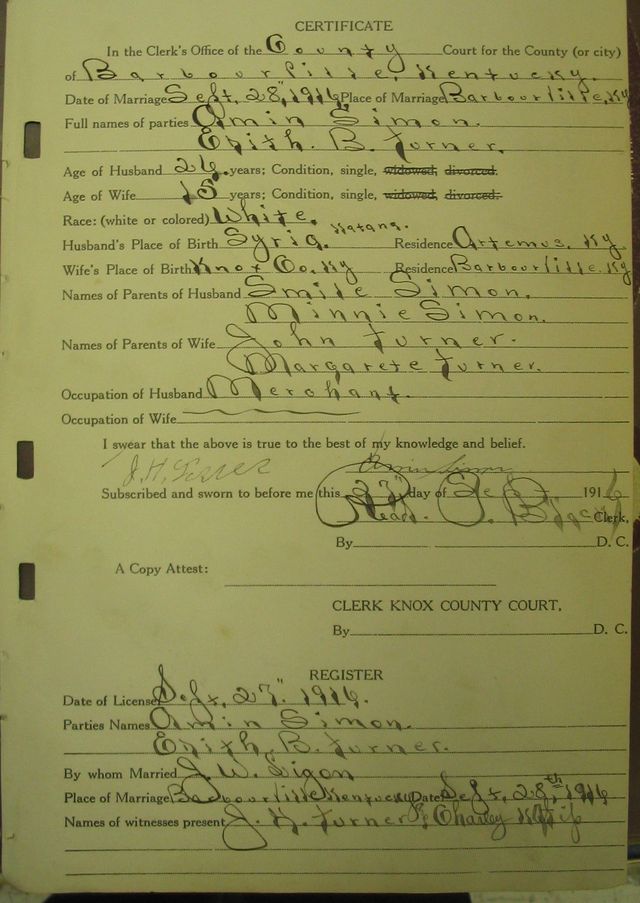 CERTIFICATE
In the Clerk's Office of the County Court for the County (or city)
of Barbourville, Kentucky.
Date of Marriage Sept. 28", 1916 Place of Marriage Barbourville, Ky
Full names of parties Amin Simon.
Edith. B. Turner.
Age of Husband 26. years; Condition, single, widowed, divorced.
Age of Wife 18 years; Condition, single, widowed, divorced.
Race: (white or colored) White.
Husband's Place of Birth Syria. Residence Artemus, Ky
Wife's Place of Birth Knox Co. Ky Residence Barbourville. Ky
Names of Parents of Husband Smile Simon.
Minnie Simon.
Names of Parents of Wife John Turner.
Margarete Turner.
Occupation of Husband Merchant.
Occupation of Wife
I swear that the above is true to the best of my knowledge and belief.
J. H. Amin Simon
Subscribed and sworn to before me this 27" day of Sept 1916
Read. Clerk,
By D. C.
A Copy Attest:
CLERK KNOX COUNTY COURT,
By D. C.
REGISTER
Date of License Sept. 27". 1916.
Parties Names Amin Simon.
Edith. B. Turner.
By whom Married J. W. Ligon
Place of Marriage Barbourville Kentucky Date Sept. 28,th 1916
Names of witnesses present J. H. Turner & Charley